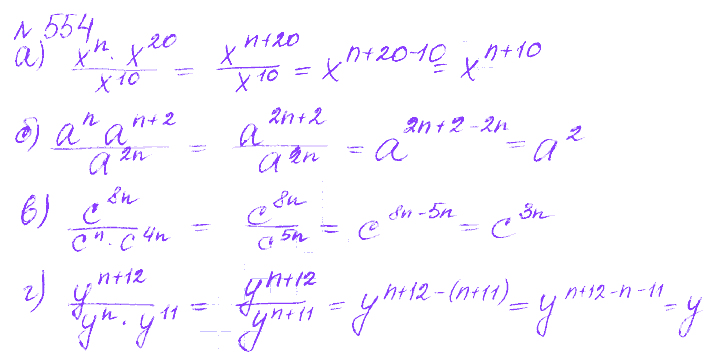 № 554
а) \frac{x^n \cdot x^{20}}{x^{10}} = \frac{x^{n+20}}{x^{10}} = x^{n+20-10} = x^{n+10}
б) \frac{a^n a^{n+2}}{a^{2n}} = \frac{a^{2n+2}}{a^{2n}} = a^{2n+2-2n} = a^2
в) \frac{c^{8n}}{c^n \cdot c^{4n}} = \frac{c^{8n}}{c^{5n}} = c^{8n-5n} = c^{3n}
г) \frac{y^{n+12}}{y^n \cdot y^{11}} = \frac{y^{n+12}}{y^{n+11}} = y^{n+12-(n+11)} = y^{n+12-n-11} = y